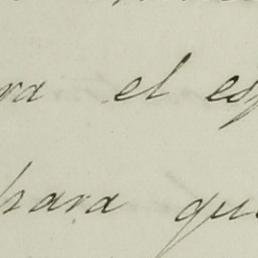 ra el esp
para que